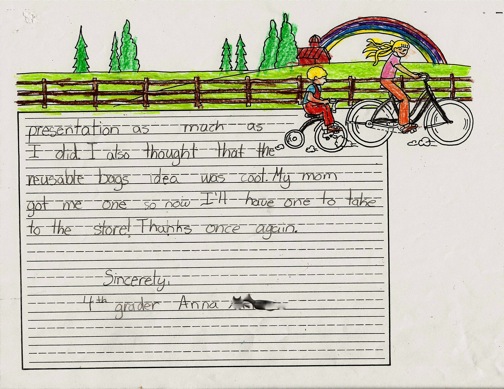 presentation as much as
I did. I also thought that the
reusable bags idea was cool. My mom
got me one so now I'll have one to take
to the store! Thanks once again.
Sincerely,
4th grader Anna